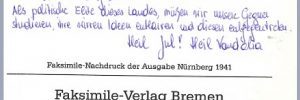 Als politische Elite dieses Landes müssen wir unsere Gegner
studieren, ihre wirren Ideen entlarven und diesen entgegentreten.
Heil Jul! Heil Vandalia
Faksimile-Nachdruck der Ausgabe Nürnberg 1941
Faksimile-Verlag Bremen